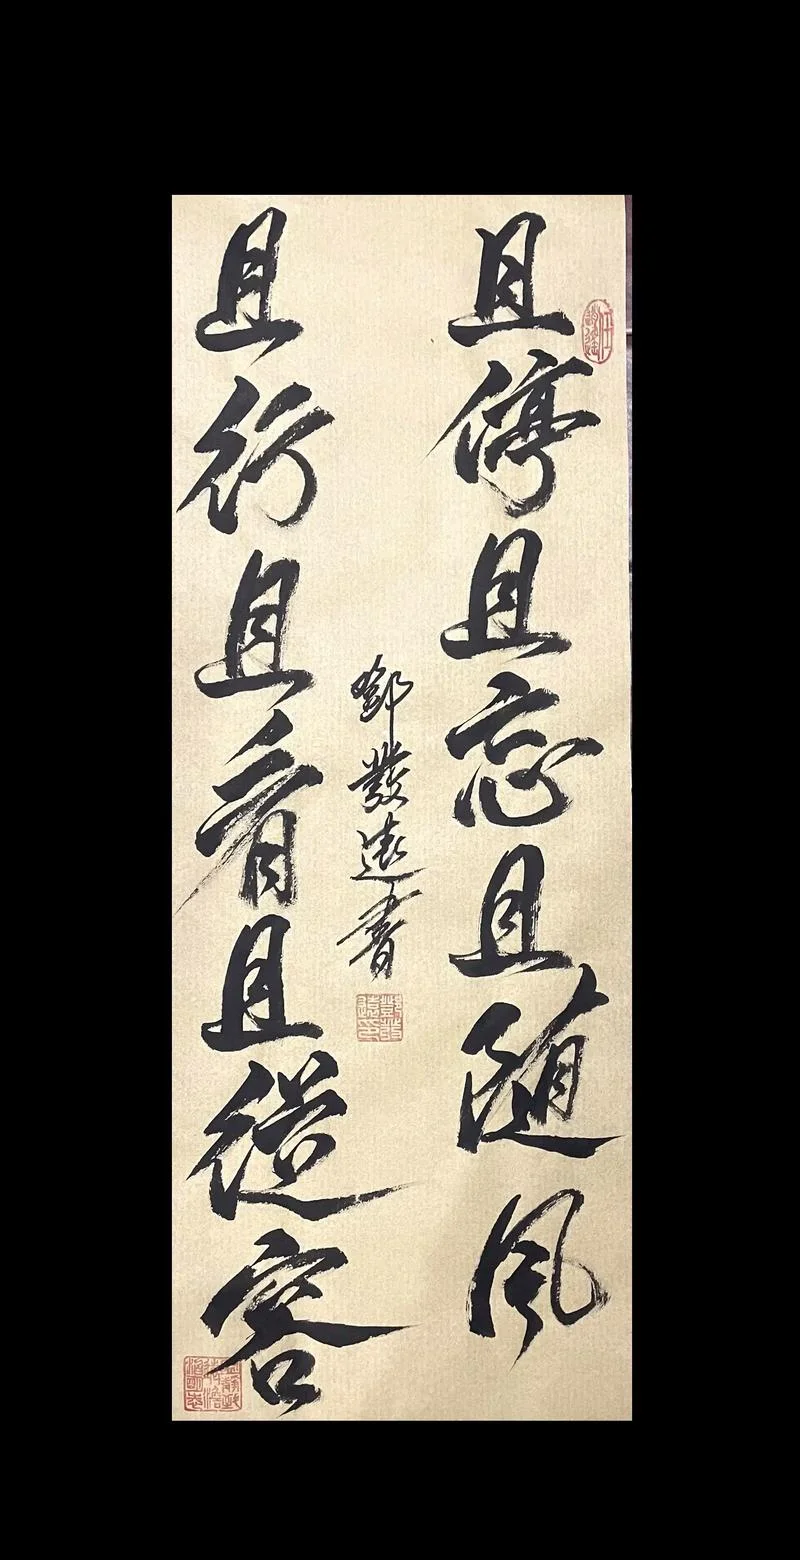 且停且忘且随風
且行且看且從容
鄧發遠書